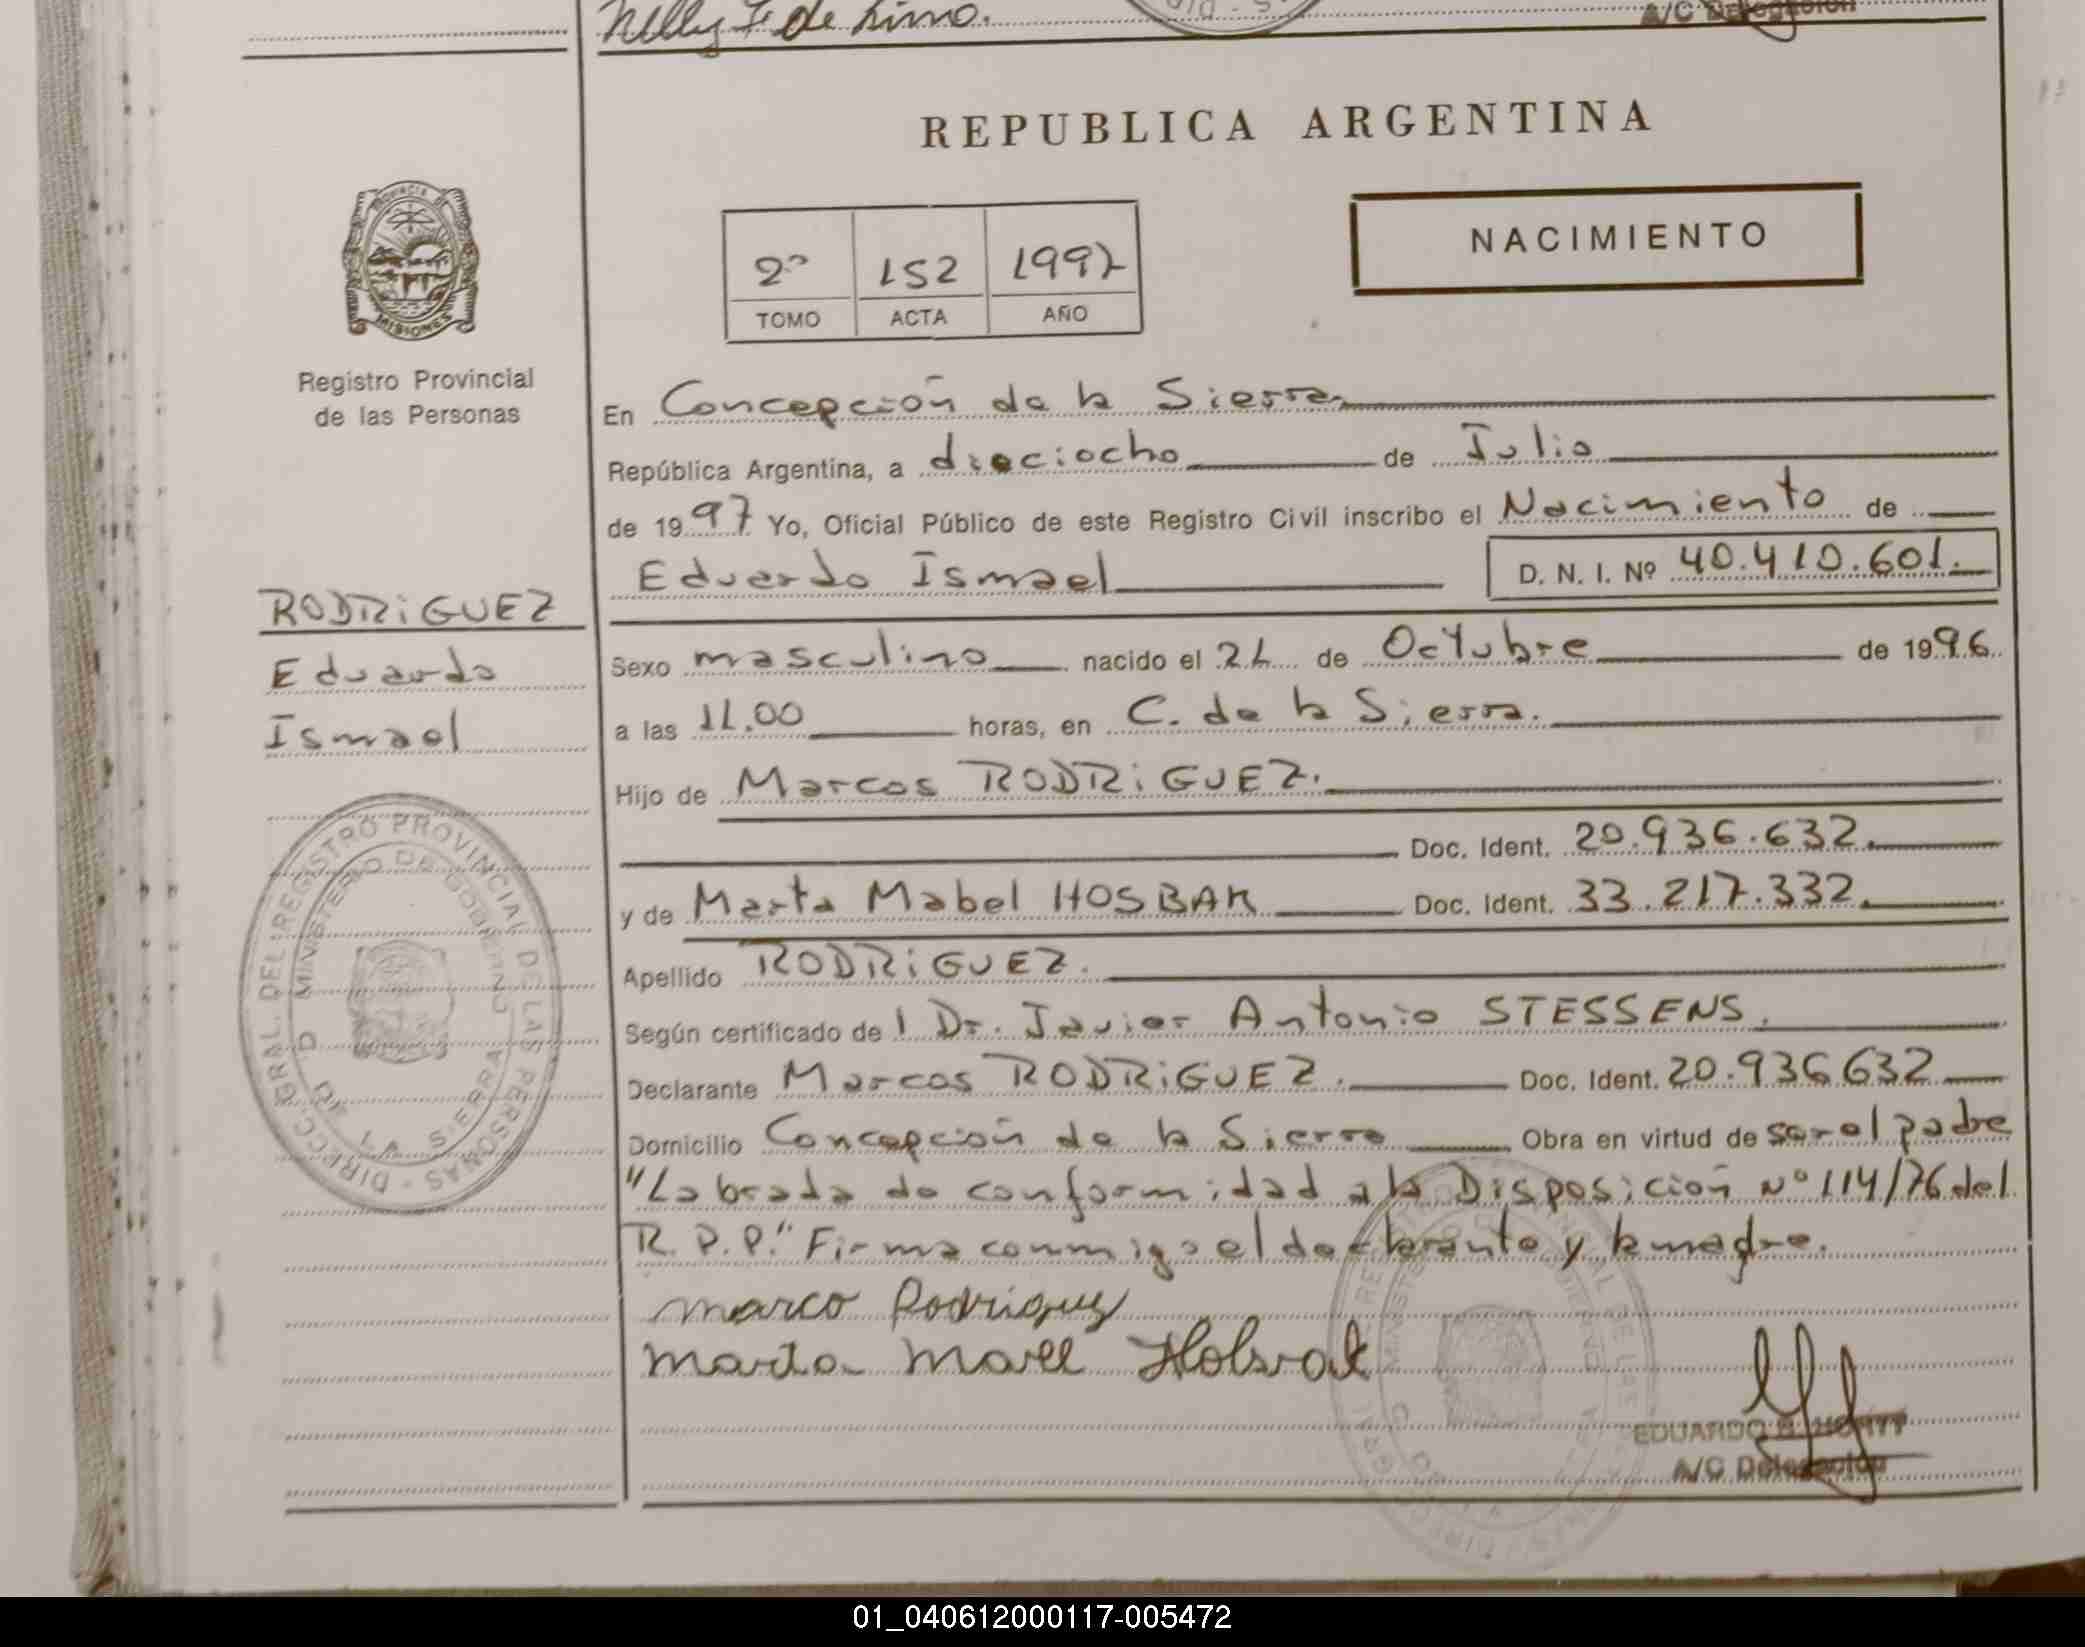 Nelly F de Limo.
A/C Delegación
REPUBLICA ARGENTINA
PROVINCIA DE
MISIONES
2º 152 1997
TOMO ACTA AÑO
NACIMIENTO
Registro Provincial
de las Personas
En Concepción de la Sierra
República Argentina, a dieciocho de Julio
de 1997 Yo, Oficial Público de este Registro Civil inscribo el Nacimiento de
Eduardo Ismael D. N. I. Nº 40.410.601.
RODRiGUEZ
Eduardo
Ismael
Sexo masculino nacido el 21 de Octubre de 1996
a las 11.00 horas, en C. de la Sierra.
Hijo de Marcos RODRiGUEZ.
Doc. Ident. 20.936.632.
y de Marta Mabel HOSBAK Doc. Ident. 33.217.332.
Apellido RODRiGUEZ.
Según certificado de l Dr. Javier Antonio STESSENS.
Declarante Marcos RODRiGUEZ. Doc. Ident. 20.936632
Domicilio Concepción de la Sierra Obra en virtud de ser el padre
"Labrada de conformidad a la Disposición Nº 114/76 del
R.P.P." Firma conmigo el declarante y la madre.
marco Rodriguez
marta
DIRECC. GRAL. DEL REGISTRO PROVINCIAL DE LAS PERSONAS
MINISTERIO DE GOBIERNO
LA SIERRA
EDUARDO
A/C Delegación
01_040612000117-005472